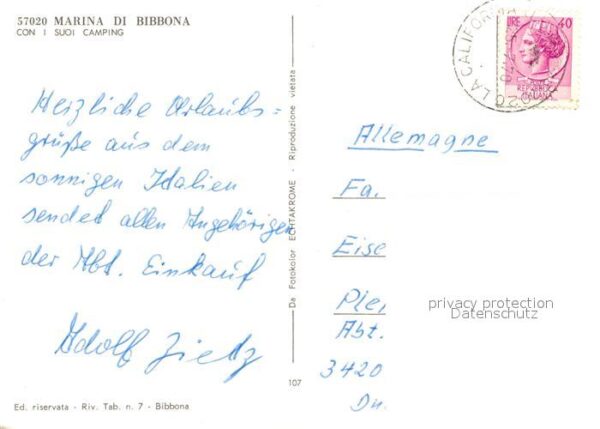 57020 MARINA DI BIBBONA
CON I SUOI CAMPING
Herzliche Urlaubs=
grüße aus dem
sonnigen Italien
sendet allen Angehörigen
der Abt. Einkauf
Adolf Zietz
Da Fotokolor ECHTAKROME - Riproduzione vietata
107
Ed. riservata - Riv. Tab. n. 7 - Bibbona
LIRE 40
REPUBBLICA
ITALIANA
LA CALIFORNIA
Allemagne
Fa.
Eise
Ple,
privacy protection
Datenschutz
Abt.
3420
Du.